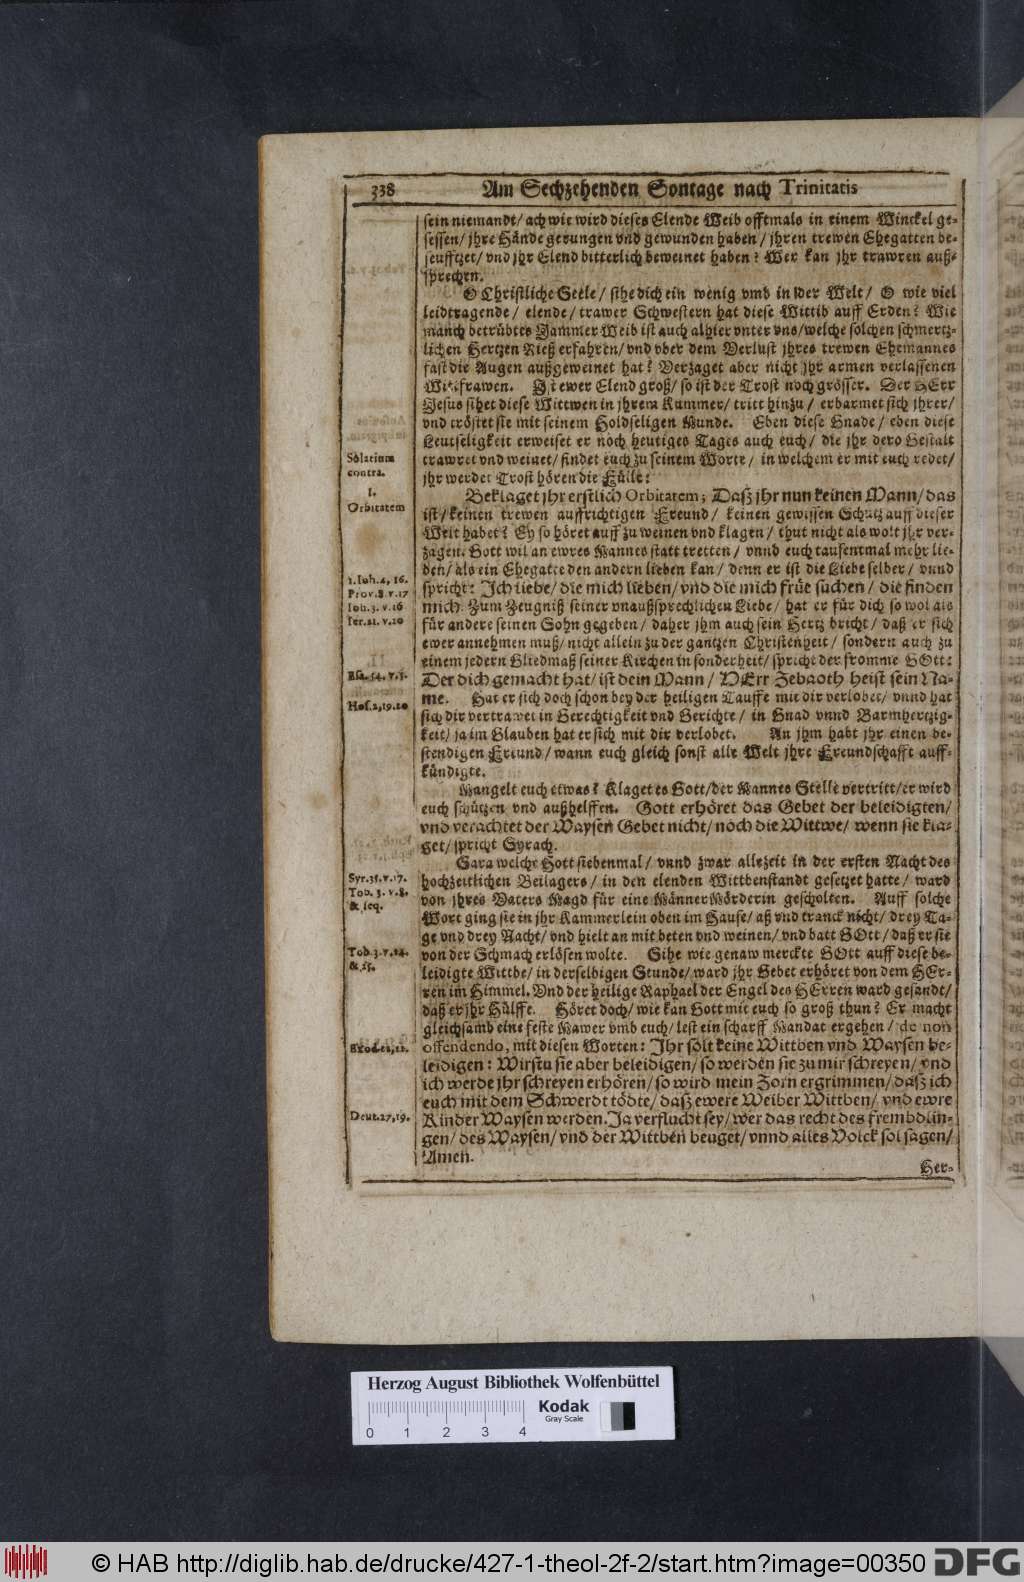 338 Am Sechzehenden Sontage nach Trinitatis
sein niemandt/ ach wie wird dieses Elende Weib offtmals in einem Winckel ge-
sessen/ jhre Hände gerungen vnd gewunden haben/ jhren trewen Ehegatten be-
seufftzet/ vnd jhr Elend bitterlich beweinet haben? Wer kan jhr trawren auß-
sprechen.
O Christliche Seele/ sihe dich ein wenig vmb in der Welt/ O wie viel
leidtragende/ elende/ trawer Schwestern hat diese Wittib auff Erden? Wie
manch betrübtes Jammer Weib ist auch alhier vnter vns/ welche solchen schmertz-
lichen Hertzen Rieß erfahren/ vnd vber dem Verlust jhres trewen Ehemannes
fast die Augen außgeweinet hat? Verzaget aber nicht jhr armen verlassenen
Witfrawen. Ist ewer Elend groß/ so ist der Trost noch grösser. Der HErr
Jesus sihet diese Wittwen in jhrem Kummer/ tritt hinzu/ erbarmet sich jhrer/
vnd tröstet sie mit seinem Holdseligen Munde. Eben diese Gnade/ eben diese
Leutseligkeit erweiset er noch heutiges Tages auch euch/ die jhr dero Gestalt
Solatium
contra.
trawret vnd weinet/ findet euch zu seinem Worte/ in welchem er mit euch redet/
jhr werdet Trost hören die Fülle:
I.
Orbitatem
Beklaget jhr erstlich Orbitatem; Daß jhr nun keinen Mann/ das
ist/ keinen trewen auffrichtigen Freund/ keinen gewissen Schutz auff dieser
Welt habet? Ey so höret auff zu weinen vnd klagen/ thut nicht als wolt jhr ver-
zagen. Gott wil an ewres Mannes statt tretten/ vnnd euch tausentmal mehr lie-
ben/ als ein Ehegatte den andern lieben kan/ denn er ist die Liebe selber/ vnnd
1. Ioh. 4, 16.
Prov. 8. v. 17
Ioh. 3. v. 16
Ier. 21. v. 20
spricht: Ich liebe/ die mich lieben/ vnd die mich früe suchen/ die finden
mich. Zum Zeugniß seiner vnaußsprechlichen Liebe/ hat er für dich so wol als
für andere seinen Sohn gegeben/ daher jhm auch sein Hertz bricht/ daß er sich
ewer annehmen muß/ nicht allein zu der gantzen Christenheit/ sondern auch zu
einem jedern Gliedmaß seiner Kirchen in sonderheit/ spricht der fromme GOtt:
Esa. 54. v. 5.
Der dich gemacht hat/ ist dein Mann/ HErr Zebaoth heist sein Na-
me. Hat er sich doch schon bey der heiligen Tauffe mit dir verlobet/ vnnd hat
Hos. 2, 19. 20
sich dir vertrawet in Gerechtigkeit vnd Gerichte/ in Gnad vnnd Barmhertzig-
keit/ ja im Glauben hat er sich mit dir verlobet. An jhm habt jhr einen be-
stendigen Freund/ wann euch gleich sonst alle Welt jhre Freundschafft auff-
kündigte.
Mangelt euch etwas? Klaget es Gott/ der Mannes Stelle vertritt/ er wird
euch schützen vnd außhelffen. Gott erhöret das Gebet der beleidigten/
vnd verachtet der Waysen Gebet nicht/ noch die Wittwe/ wenn sie kla-
get/ spricht Syrach.
Syr. 35. v. 17.
Tob. 3. v. 8.
& seq.
Sara welche Gott siebenmal/ vnnd zwar allezeit in der ersten Nacht des
hochzeitlichen Beilagers/ in den elenden Wittbenstandt gesetzet hatte/ ward
von jhres Vaters Magd für eine Männer Mörderin gescholten. Auff solche
Wort ging sie in jhr Kammerlein oben im Hause/ aß vnd tranck nicht/ drey Ta-
ge vnd drey Nacht/ vnd hielt an mit beten vnd weinen/ vnd batt GOtt/ daß er sie
Tob. 3. v. 24.
& 25.
von der Schmach erlösen wolte. Sihe wie genaw merckte GOtt auff diese be-
leidigte Wittbe/ in derselbigen Stunde/ ward jhr Gebet erhöret von dem HEr-
ren im Himmel. Vnd der heilige Raphael der Engel des HErren ward gesandt/
daß er jhr Hülffe. Höret doch/ wie kan Gott mit euch so groß thun? Er macht
gleichsamb eine feste Mawer vmb euch/ lest ein scharff Mandat ergehen/ de non
Exod. 22, 22.
offendendo, mit diesen Worten: Jhr solt keine Wittben vnd Waysen be-
leidigen: Wirstu sie aber beleidigen/ so werden sie zu mir schreyen/ vnd
ich werde jhr schreyen erhören/ so wird mein Zorn ergrimmen/ daß ich
euch mit dem Schwerdt tödte/ daß ewere Weiber Wittben/ vnd ewre
Deut. 27, 19.
Kinder Waysen werden. Ja verflucht sey/ wer das recht des frembdlin-
gen/ des Waysen/ vnd der Wittben beuget/ vnnd alles Volck sol sagen/
Amen.
Her-
Herzog August Bibliothek Wolfenbüttel
Kodak
Gray Scale
0 1 2 3 4
© HAB http://diglib.hab.de/drucke/427-1-theol-2f-2/start.htm?image=00350 DFG